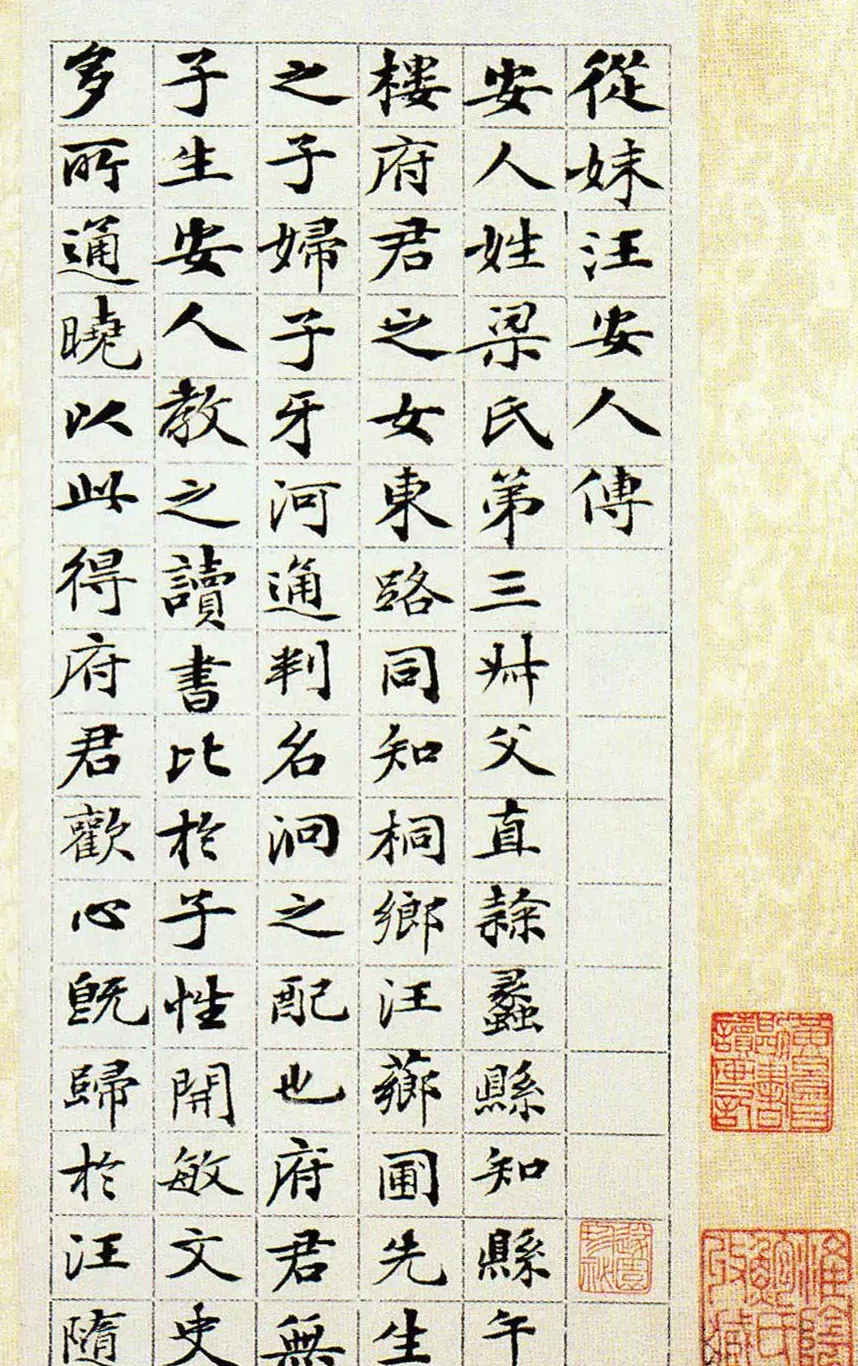 從妹汪安人傳
安人姓梁氏第三叔父直隸蠡縣知縣午
樓府君之女東路同知桐鄉汪薌圃先生
之子婦子牙河通判名泂之配也府君無
子生安人教之讀書比於子性開敏文史
多所通曉以此得府君歡心既歸於汪隨